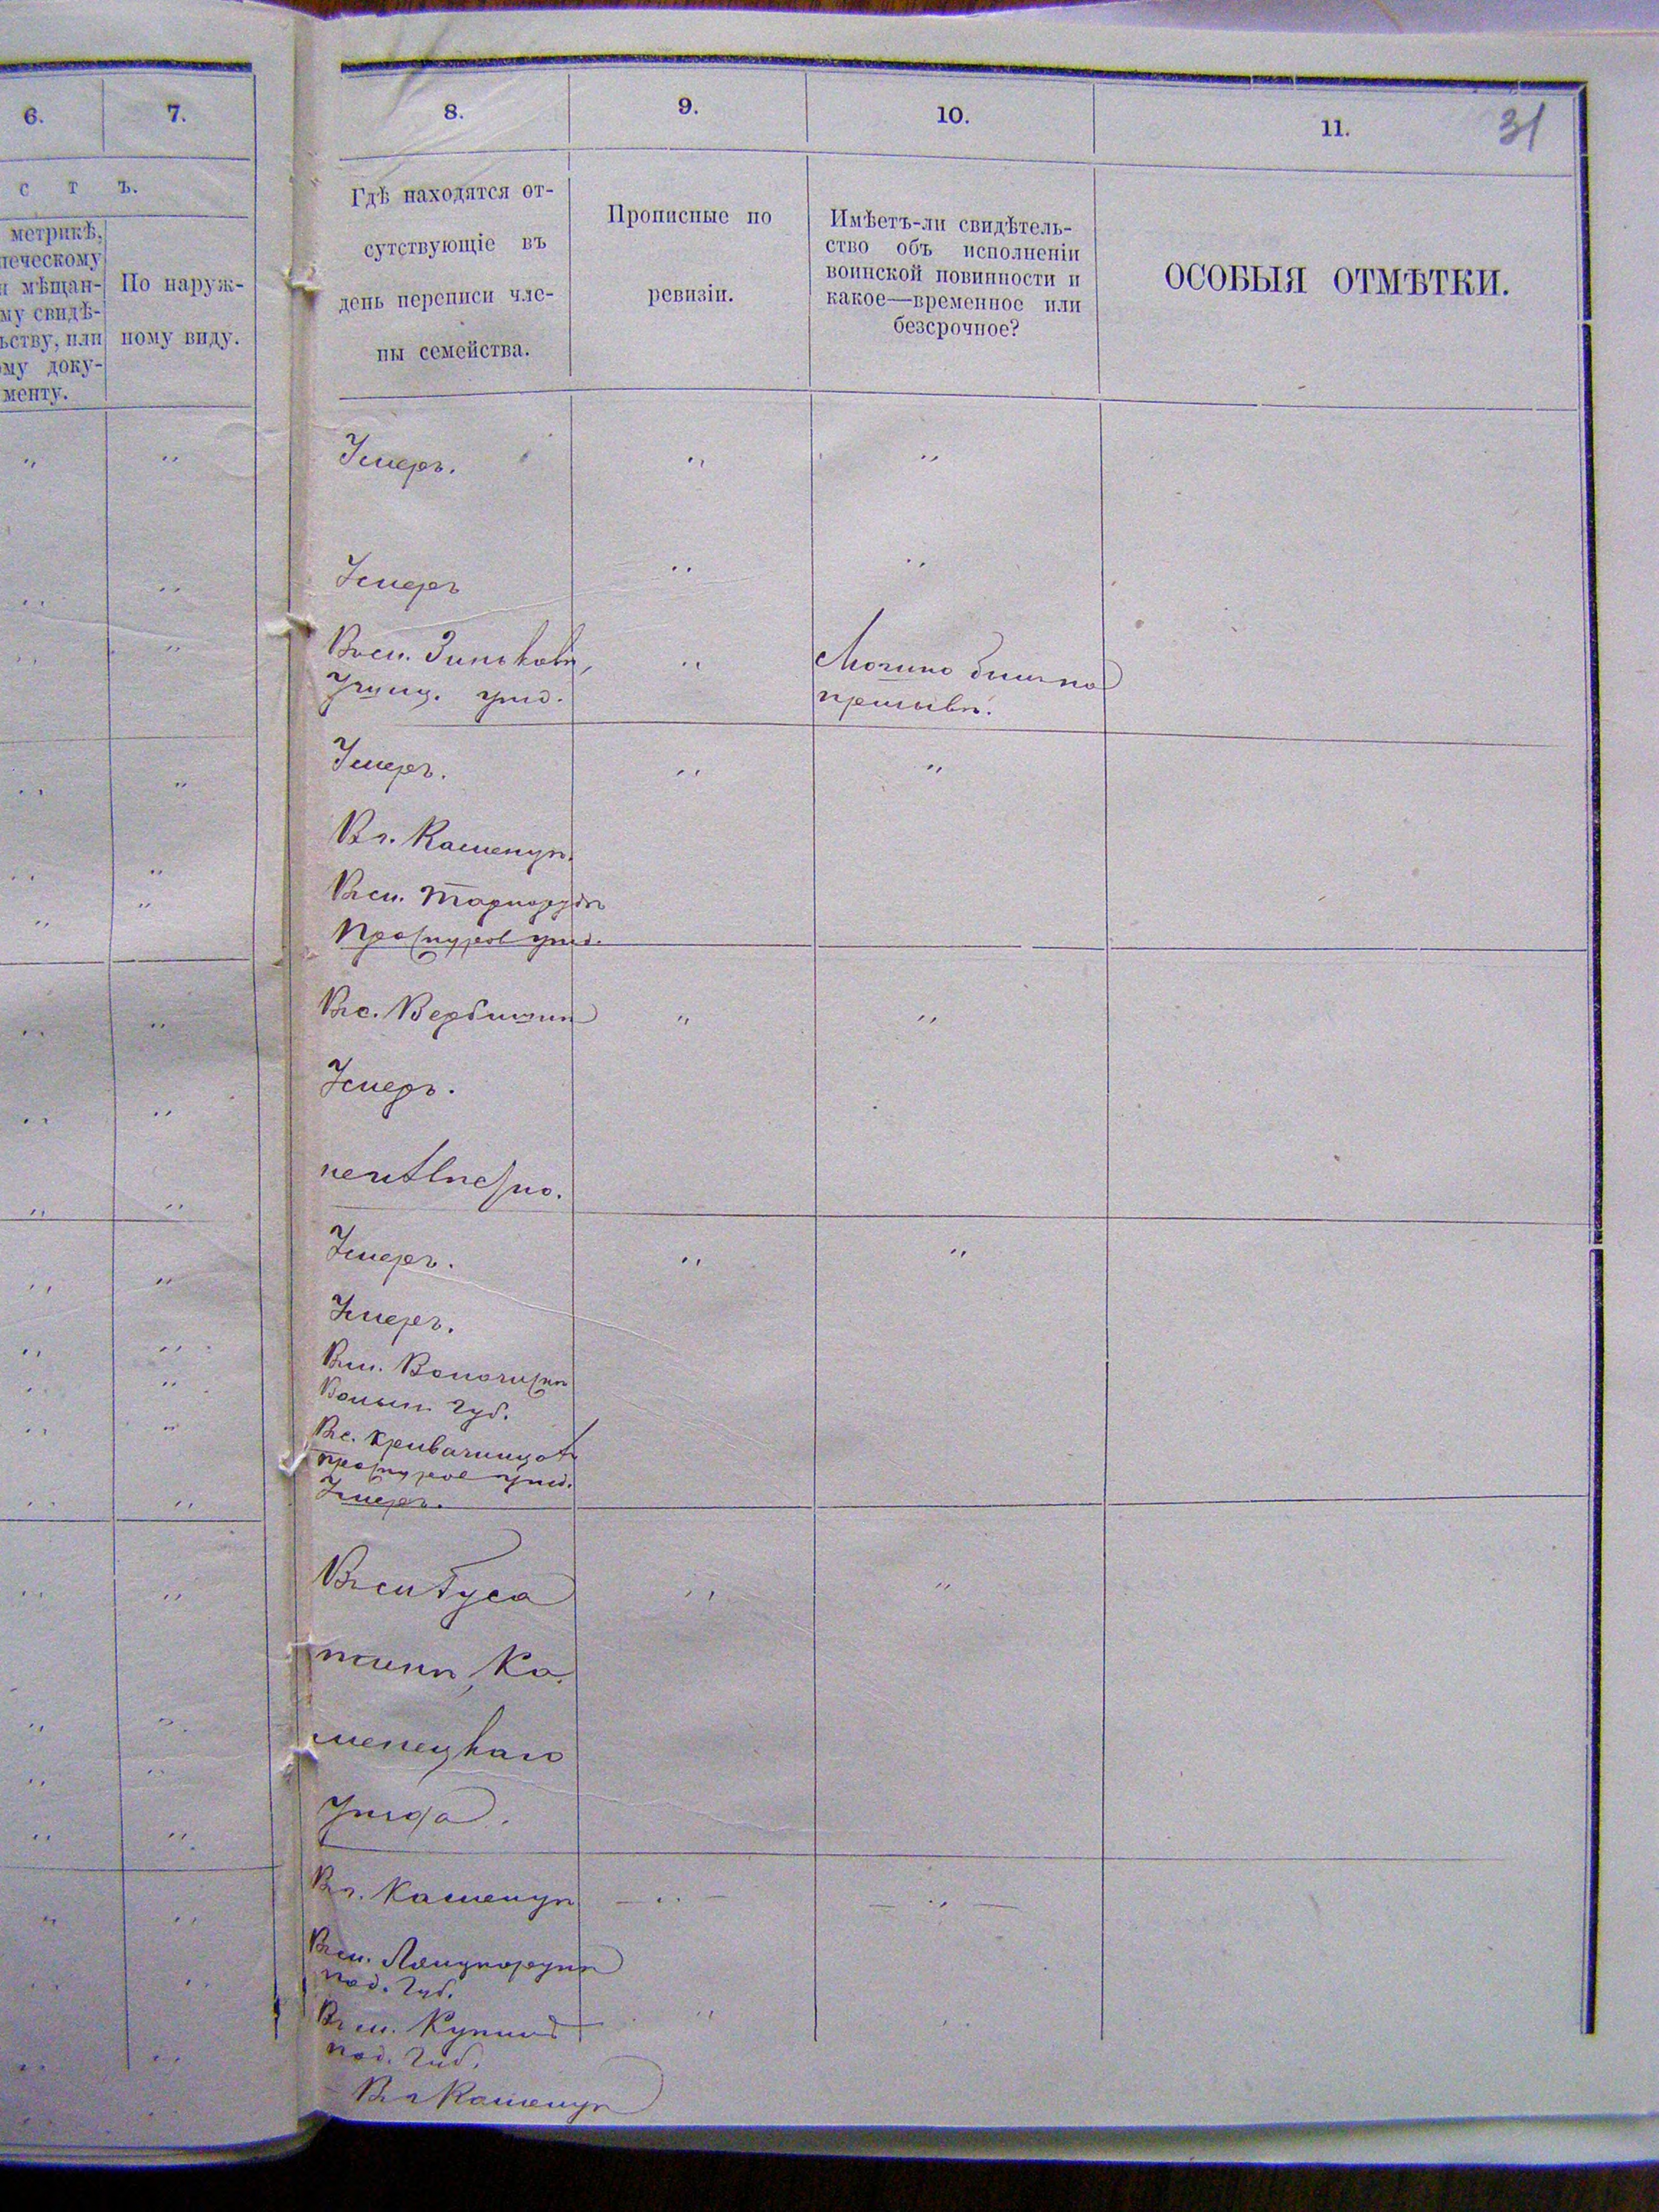 6.
7.
с т ъ.
метрикѣ,
печескому
и мѣщан-
му свидѣ-
ьству, или
ому доку-
менту.
По наруж-
ному виду.
8.
9.
10.
11.
31
Гдѣ находятся от-
сутствующіе въ
день переписи чле-
ны семейства.
Прописные по
ревизіи.
Имѣетъ-ли свидѣтель-
ство объ исполненіи
воинской повинности и
какое—временное или
безсрочное?
ОСОБЫЯ ОТМѢТКИ.
Умеръ.
Умеръ
Въ м. Зиньковѣ,
уѣзд.
Умеръ.
Въ г. Каменцѣ.
Въ м. Тарнорудѣ
Проскуров уѣзд.
Въ с. Вербички
Умеръ.
неизвѣстно.
Умеръ.
Умеръ.
Въ м. Волочискѣ
Волын. губ.
Въ с.
Проскуров уѣзд.
Умеръ.
Въ м Гуса
тинѣ, Ка
менецкаго
уѣзда.
Въ г. Каменцѣ
Въ м. Лянцкорунѣ
под. губ.
Въ м. Купинѣ
под. губ.
Въ г Каменцѣ